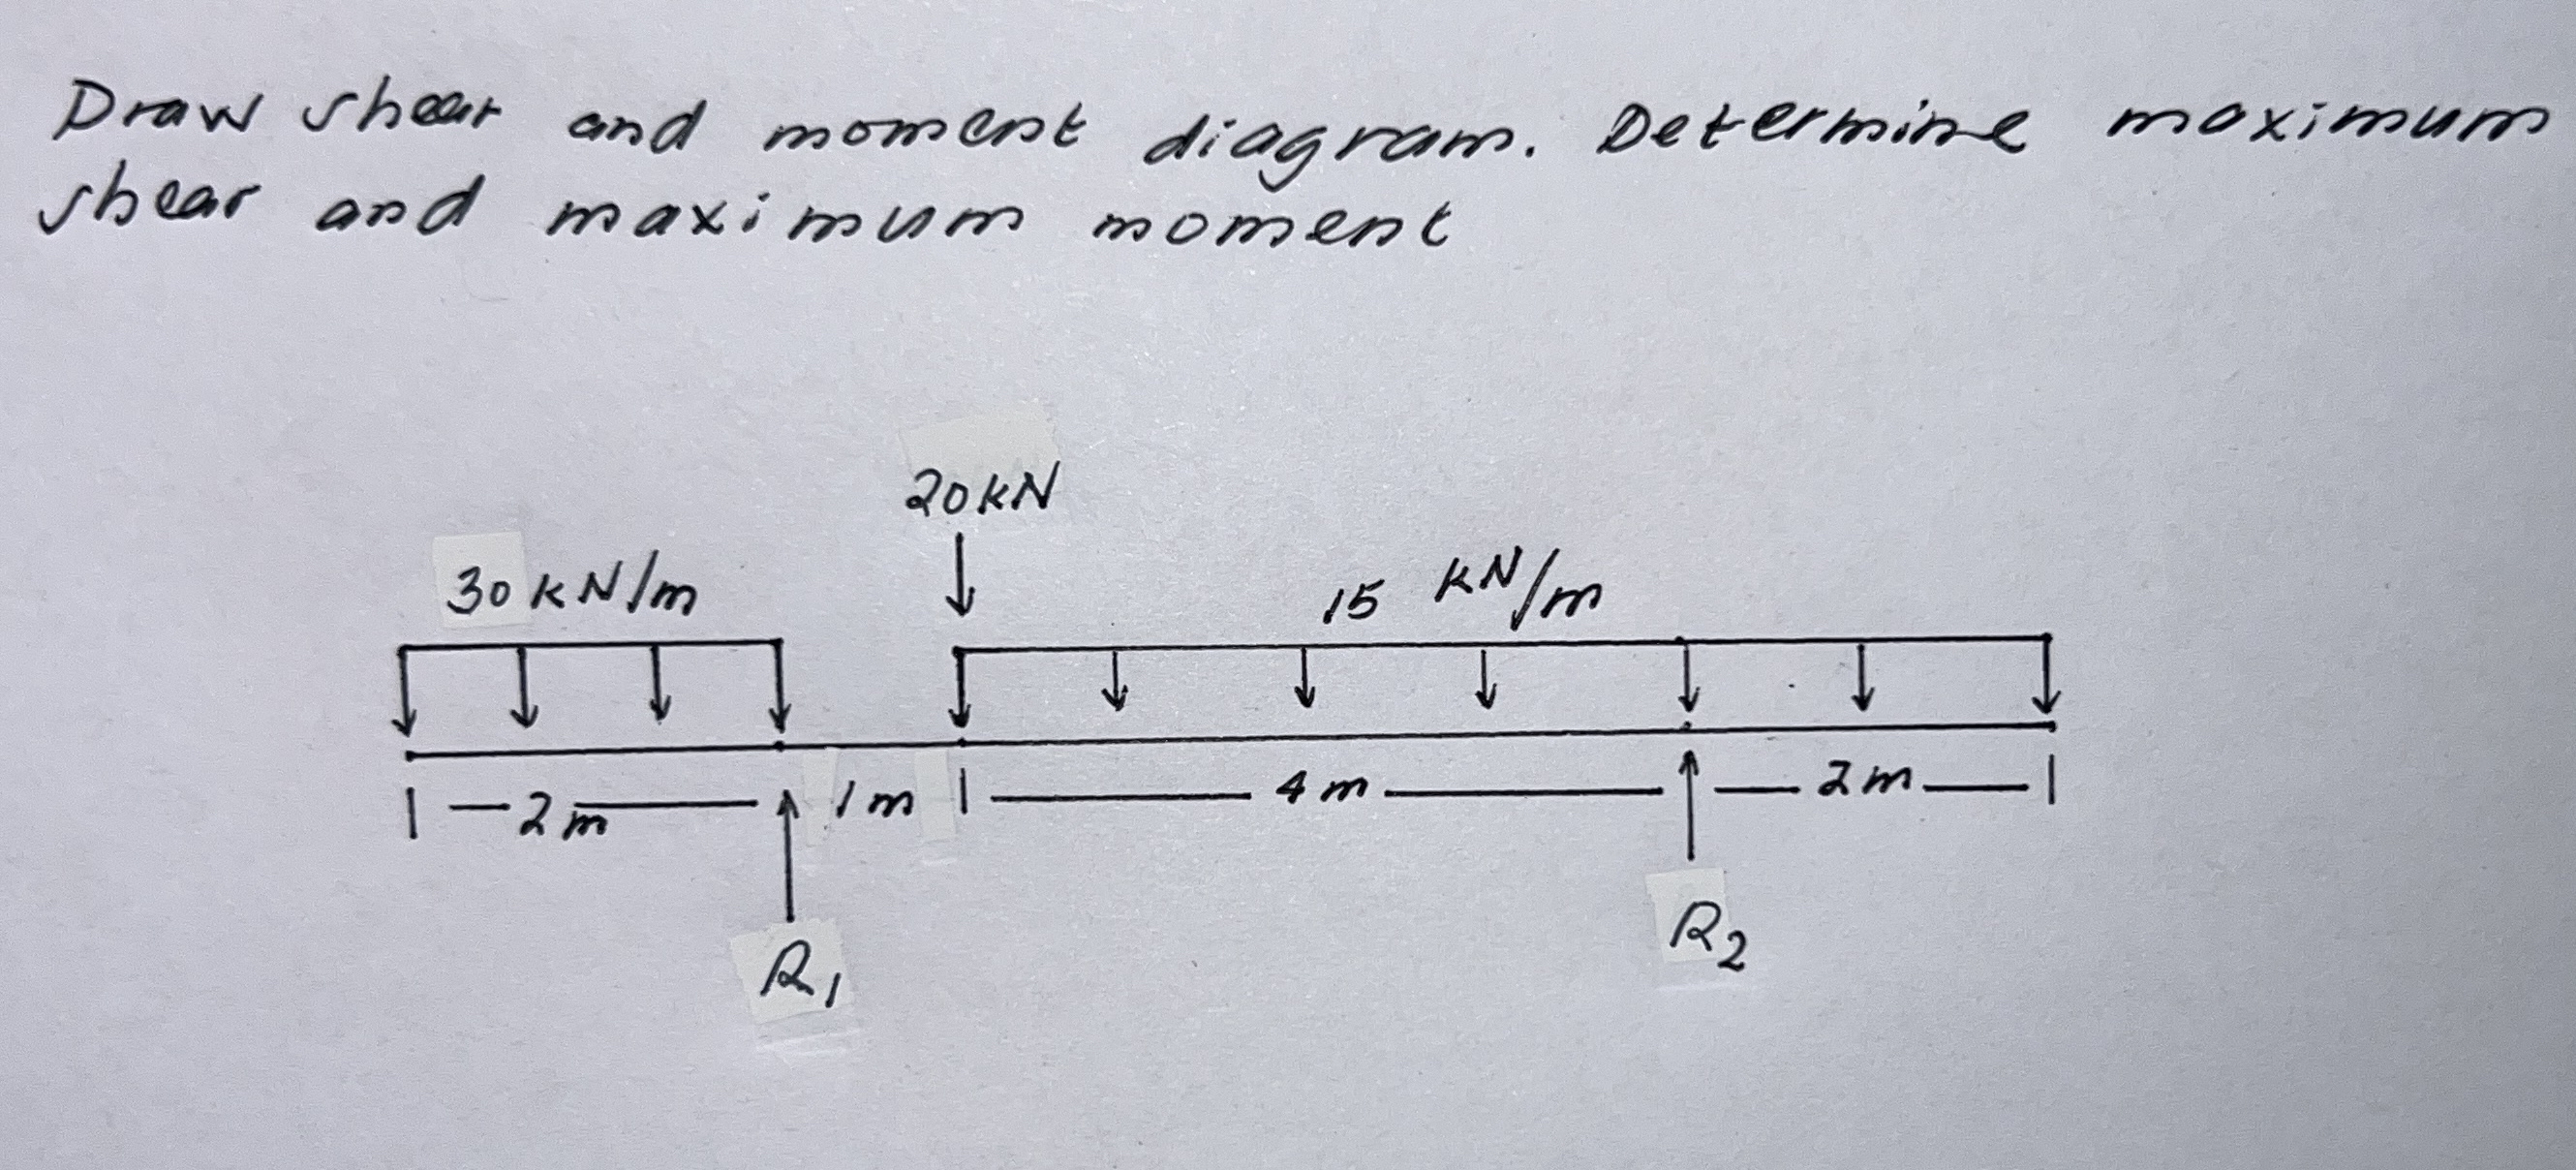 Draw shear and moment diagram. Determine maximum
shear and maximum moment
20kN
30 kN/m
15 kN/m
2m
1m
4m
2m
R2
R1